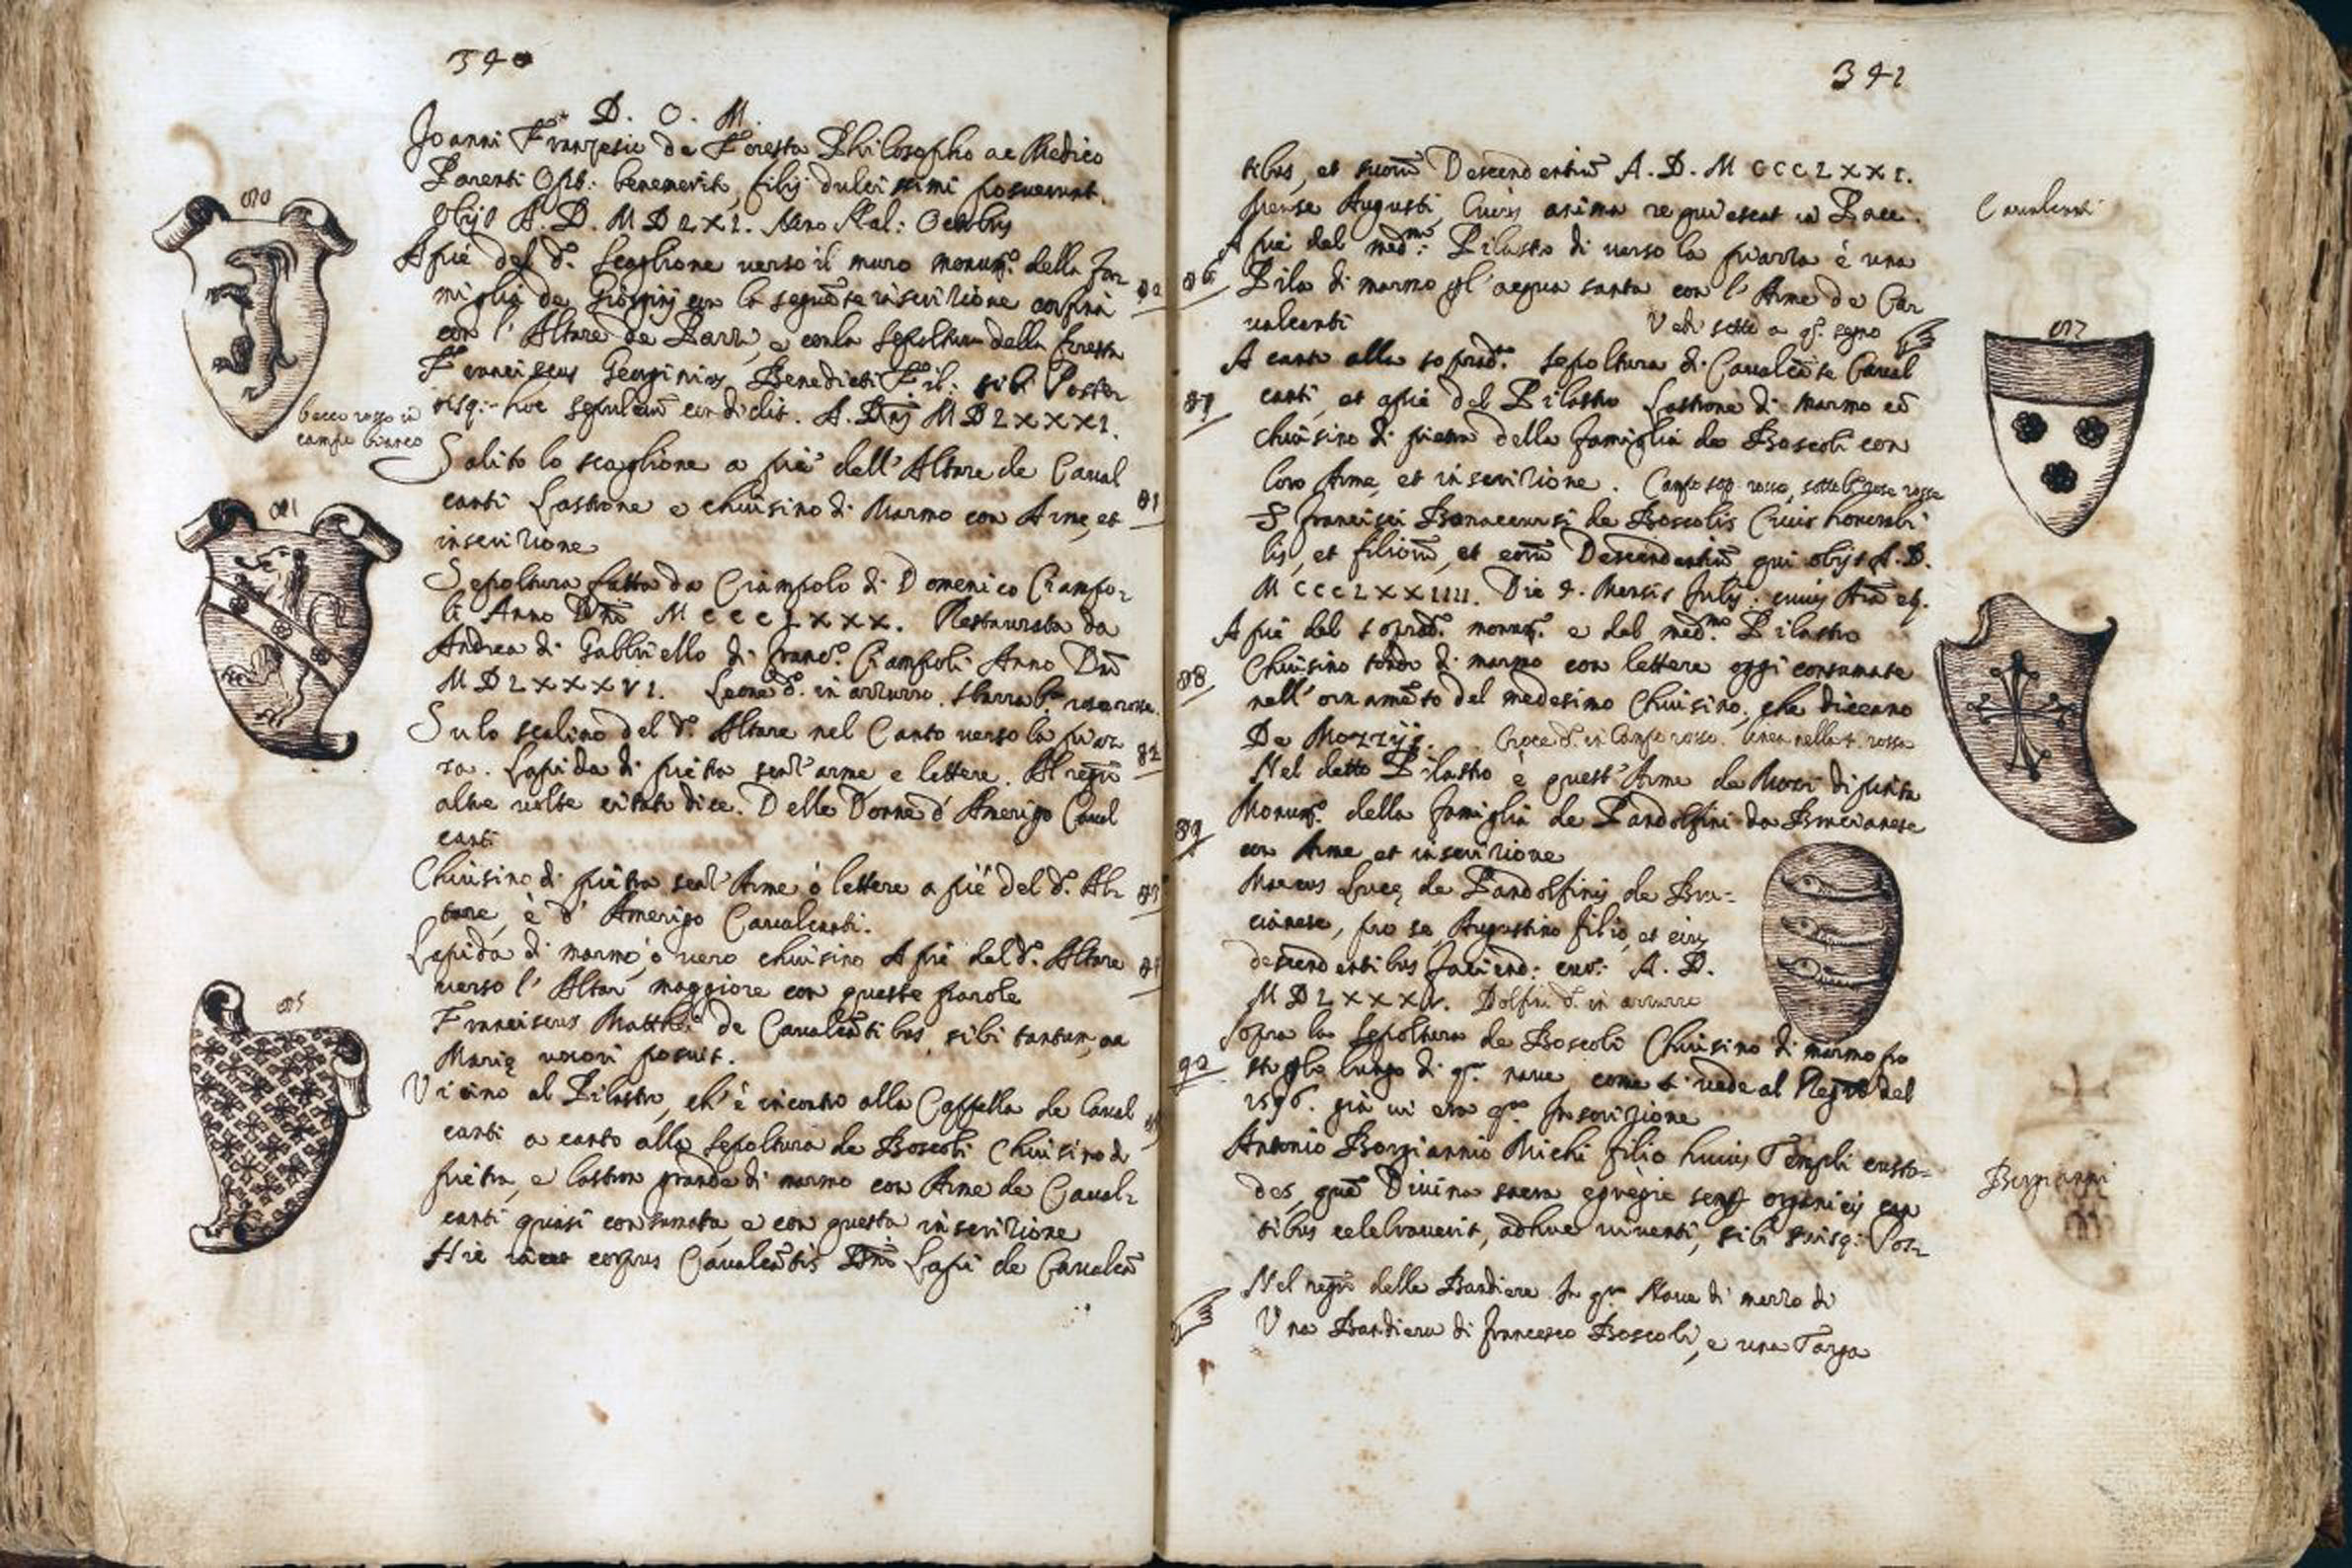 340
D. O. M.
Joanni Franzesio de Foresta Philosopho ac Medico
Parenti Opt: benemerit, filij dulcissimi posuerunt.
Obijt A. D. MDLXI. Nono Kal: Octobris
80
A piè del d.º Scaglione verso il muro monum.º della Fa
miglia de Giorgini con la seguēte inscrizione confina
con l'Altare de e con la sepoltura della Foresta
Franciscus Georginius Benedicti Fil: sibi Poster
isq: hoc sepulcrū condidit. A. Dnj MDLXXXI.
becco rosso in
campo bianco
80
Salito lo scaglione a piè dell'Altare de Caval
canti Lastrone e chiusino di Marmo con Arme, et
inscrizione
81
81
Sepoltura fatta da Ciampolo di Domenico Ciampo-
li Anno Dnī MCCCLXXX. Restaurata da
Andrea di Gabbriello di Franc.º Ciampoli Anno Dnī
MDLXXXVI. Leone d.º in azzurro. sbarra b.ª rose rosse.
Su lo scalino del d.º Altare nel Canto verso la piaz
za. Lapida di pietra senz'arme e lettere. Al regrō
altre volte citato dice. Delle Donne d'Amerigo Caval
canti
82
Chiusino di pietra senz'Arme ò lettere a piè del d.º Al-
tare, è d'Amerigo Cavalcanti.
83
Lapida di marmo, ò vero chiusino A piè del d.º Altare
verso l'Altar maggiore con queste parole
84
Franciscus Matthei de Cavalcātibus sibi tantum, ac
Marię uxori posuit.
85
Vicino al Pilastro, ch'è incontro alla Cappella de Caval
canti a canto alla sepoltura de Boscoli Chiusino di
pietra, e lastron grande di marmo con Arme de Caval-
canti quasi consumata, e con questa inscrizione
Hic iacet corpus Cavalcātis Dnī Lapi de Cavalcā
85
341
tibus, et suorū Descendentiū A. D. MCCCLXXI.
mense Augusti, cuius anima requiescat in Pace.
Cavalcanti
86
A piè del med.mo Pilastro di verso la piazza è una
Pila di marmo p l'acqua santa con l'Arme de Ca
valcanti
Vedi sotto a q.º segno
87
87
A canto alla soprad.ª sepoltura di Cavalcāte Caval
canti, et a piè del Pilastro Lastrone di marmo cō
chiusino di pietra della famiglia de Boscoli con
loro Arme, et inscrizione. Campo sop. rosso, sotto b. rose rosse
S. Francisci Bonaccursi de Boscolis Civis honorabi
lis, et filiorū, et eorū Descendentiū, qui obijt A. D.
MCCCLXXIIII. Die 9. Mensis Julij. cuius Aīa etc.
88
A piè del soprad.º monum.º e del med.mo Pilastro
Chiusino tondo di marmo con lettere oggi consumate
nell'ornamēto del medesimo Chiusino, che diceano
De Mozzijs. Croce d.º in Campo rosso.
Nel detto Pilastro è quest'Arme de Mozzi dipinta
89
Monum.º della famiglia de Pandolfini da Brucianese
con Arme et inscrizione
Marcus Lucę de Pandolfinis de Bru-
cianese, pro se, Augustino filio, et eius
descendentibus faciend: cur: A. D.
MDLXXXV. Dolfini d.º in azzurro
90
Sopra la sepoltura de Boscoli Chiusino di marmo po
sto p lo lungo di q.ª nave, come si vede al Regrō del
1596. già vi era q.ª Inscrizione
Antonio Borgiannio Michi filio huius Templi custo-
des, quē Divina sacra egregie semp organicis can
tibus celebraverit, adhuc viventi, sibi suisq: Pos-
Borgianni
Nel regrō delle Bandiere In q.ª Nave di mezzo di
Una Bandiera di Francesco Boscoli, e una Targa